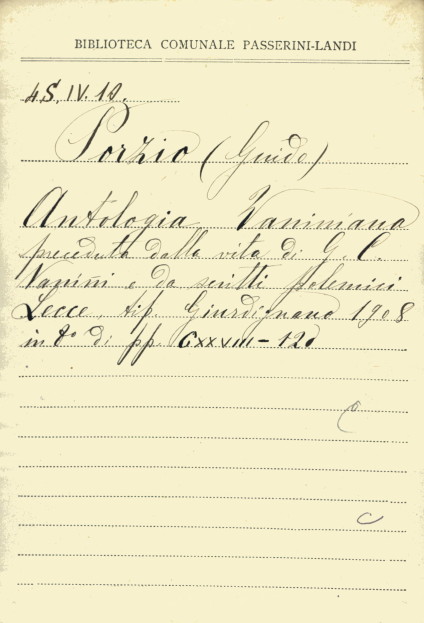 BIBLIOTECA COMUNALE PASSERINI-LANDI
4S.IV.18.
Porzio (Guido)
Antologia Vaniniana
preceduta dalla vita di G. C.
Vanini e da scritti polemici
Lecce, tip. Giurdignano 1908
in 8° di pp. CXXVIII-120